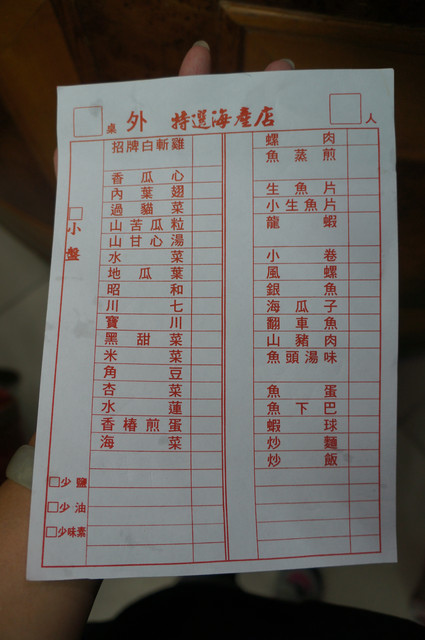 桌 外 特選海產店 人
招牌白斬雞
香瓜心
內葉翅
過貓菜
山苦瓜粒
山甘心湯
水菜
地瓜葉
昭和
川七
寶川
黑甜菜
米菜
角豆
杏菜
水蓮
香椿煎蛋
海菜
螺肉
魚蒸煎
生魚片
小生魚片
龍蝦
小卷
風螺
銀魚
海瓜子
翻車魚
山豬肉
魚頭湯味
魚蛋
魚下巴
蝦球
炒麵
炒飯
小盤
少鹽
少油
少味素